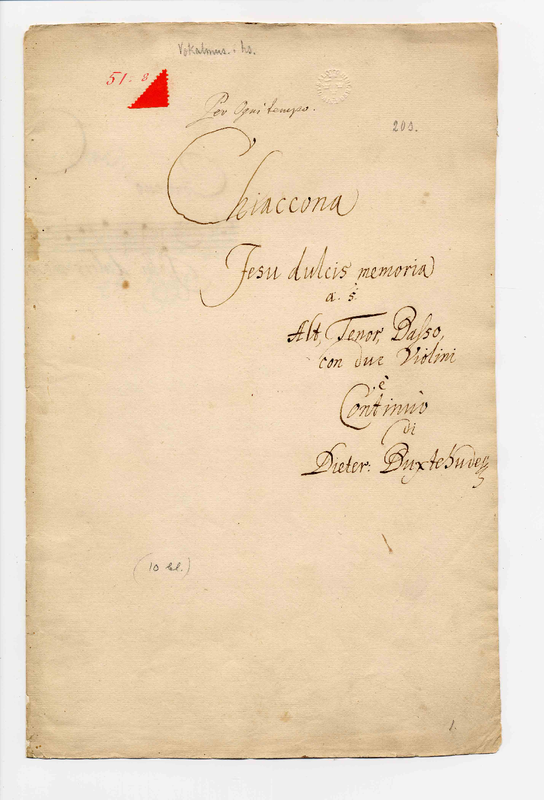 Vokalmus. hs.
51. 8
Per Ogni tempo.
203.
Chiaccona
Jesu dulcis memoria
a. 5.
Alt, Tenor, Basso,
con due Violini
è
Continuo
di
Dieter: Buxtehude
(10 bl.)
1.